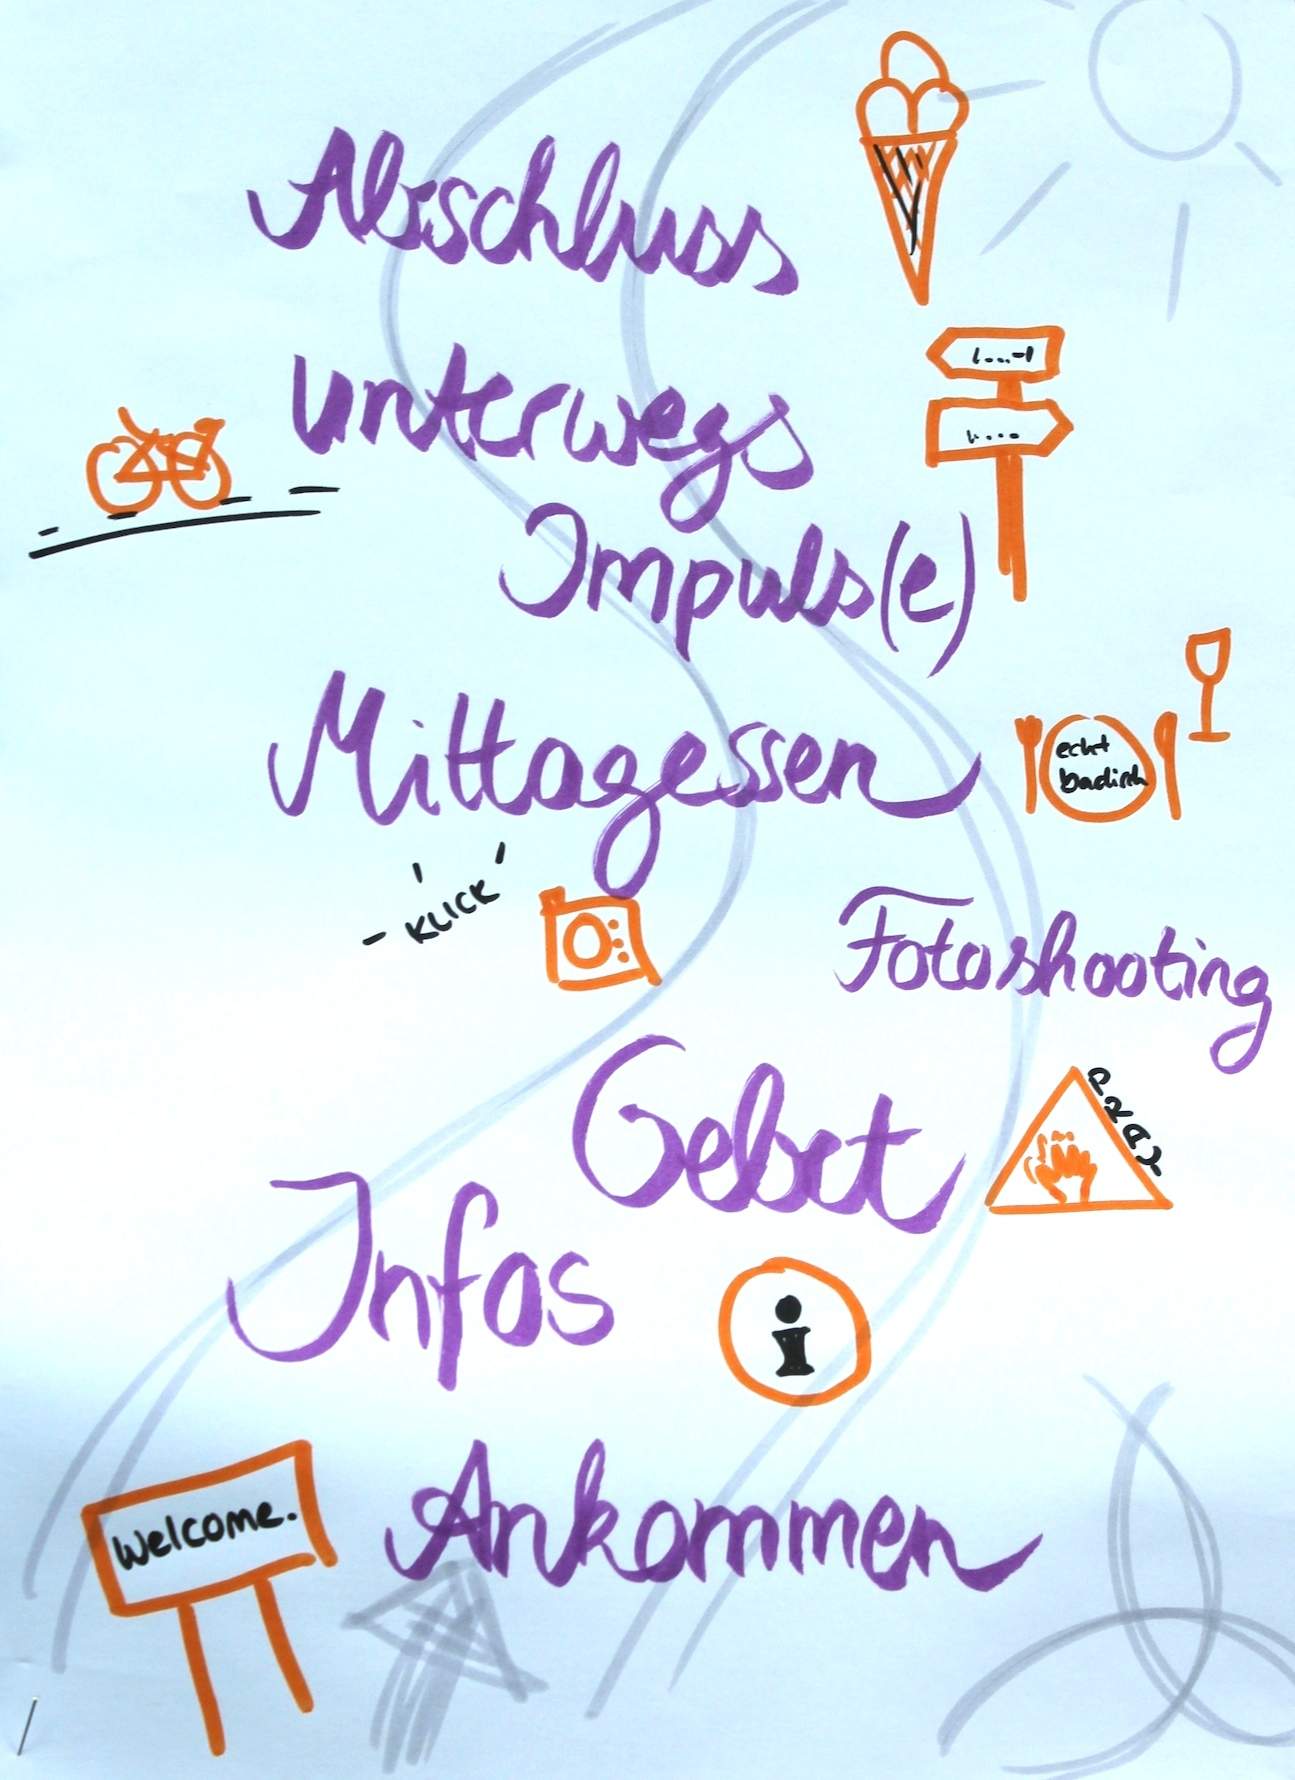 Abschluss
unterwegs
Impuls(e)
Mittagessen
echt
badisch
KLICK
Fotoshooting
Gebet
PRAY
Infos
i
Ankommen
Welcome.